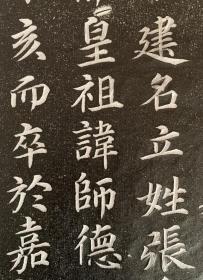 建名立姓張
皇祖諱師德
亥而卒於嘉